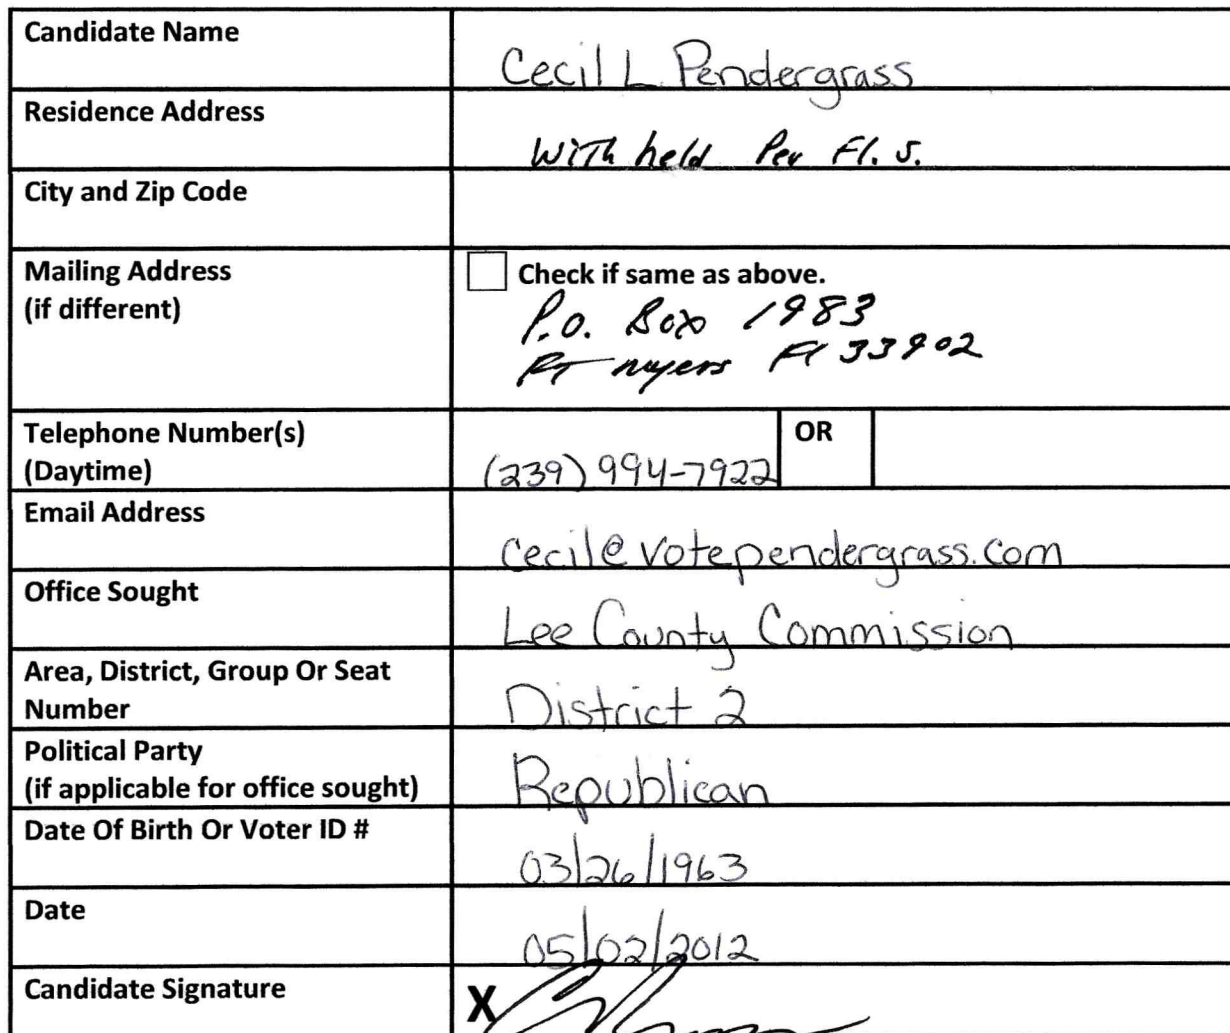 Candidate Name
Cecil L Pendergrass
Residence Address
Withheld Per Fl. S.
City and Zip Code
Mailing Address
(if different)
Check if same as above.
P.O. Box 1983
FT myers Fl 33902
Telephone Number(s)
(Daytime)
(239) 994-7922
OR
Email Address
cecil@votependergrass.com
Office Sought
Lee County Commission
Area, District, Group Or Seat
Number
District 2
Political Party
(if applicable for office sought)
Republican
Date Of Birth Or Voter ID #
03/26/1963
Date
05/02/2012
Candidate Signature
X